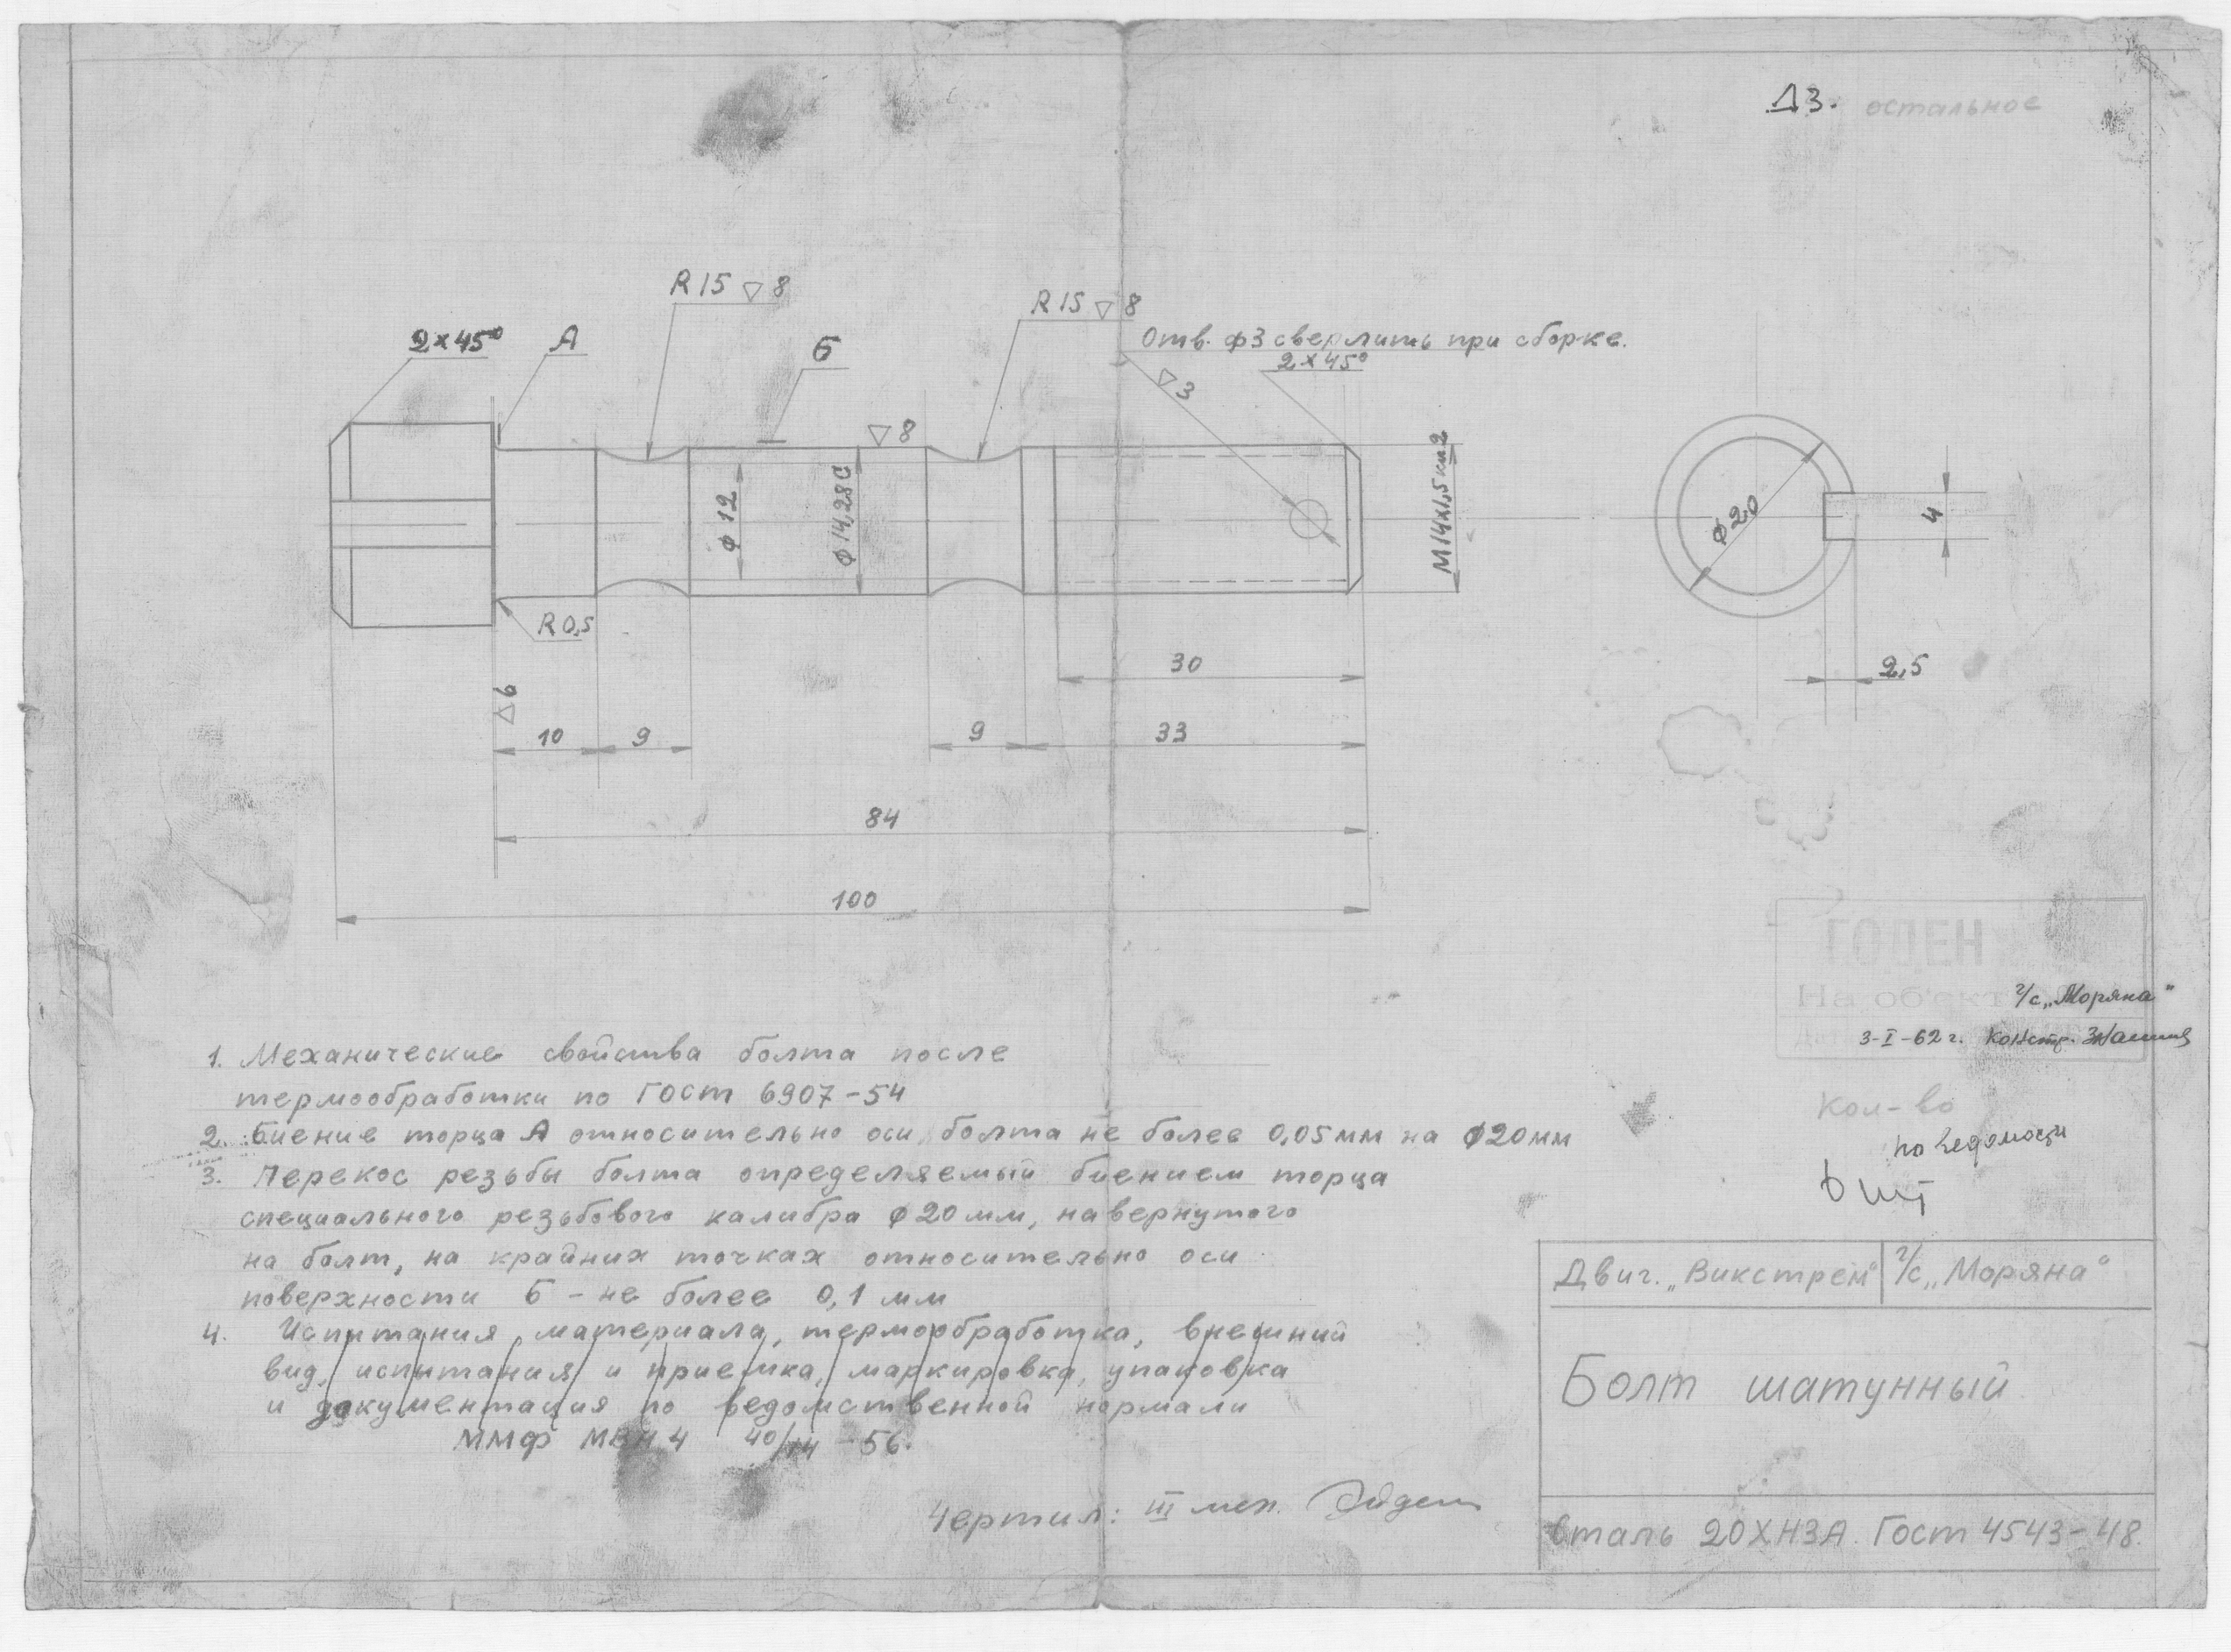 ∆3. остальное
R15 ▽8
R15 ▽8
2×45° А Б
Отв. ф3 сверлить при сборке.
2×45°
▽3
▽8
ф12
ф14,28С
М14х1,5 кл2
ф20
4
R0,5
2,5
30
▽6
10 9 9 33
84
100
ГОДЕН
На об'ект т/с „Моряна"
3-I-62 г. Констр.
1. Механические свойства болта после
термообработки по ГОСт 6907-54
2. Биение торца А относительно оси болта не более 0,05мм на ф20мм
3. Перекос резьбы болта определяемый биением торца
специального резьбового калибра ф20мм, навернутого
на болт, на крайних точках относительно оси
поверхности Б - не более 0,1 мм
4. Испытания материала, термообработка, внешний
вид, испытания и приемка, маркировка, упаковка
и документация по ведомственной нормали
ММФ МВН 4 40/14 - 56.
Кол-во
по ведомости
6 шт
Двиг. „Викстрем" т/с „Моряна"
Болт шатунный
Сталь 20ХН3А. Гост 4543-48.
Чертил: III мех.